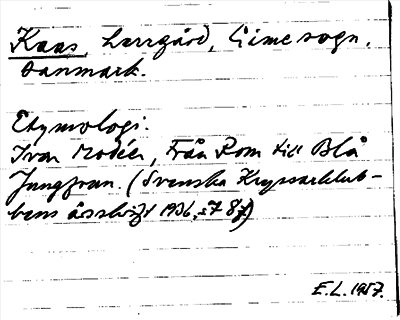 Kaas, herrgård, Lime sogn,
Danmark.
Etymologi.
Ivar Modéer, Från Rom till Blå
Jungfrun. (Svenska Kryssarklub-
bens årsskrift 1936, s 78 f)
E.L. 1957.